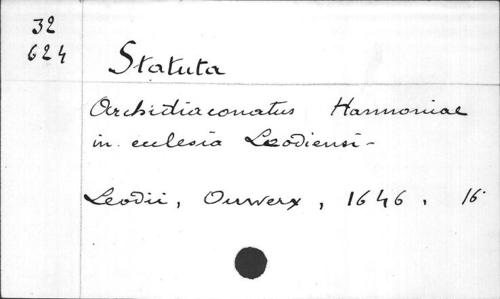 32
624
Statuta
Archidiaconatus Hannoniae
in ecclesia Leodiensi -
Leodii, Ouwerx, 1646. 16°